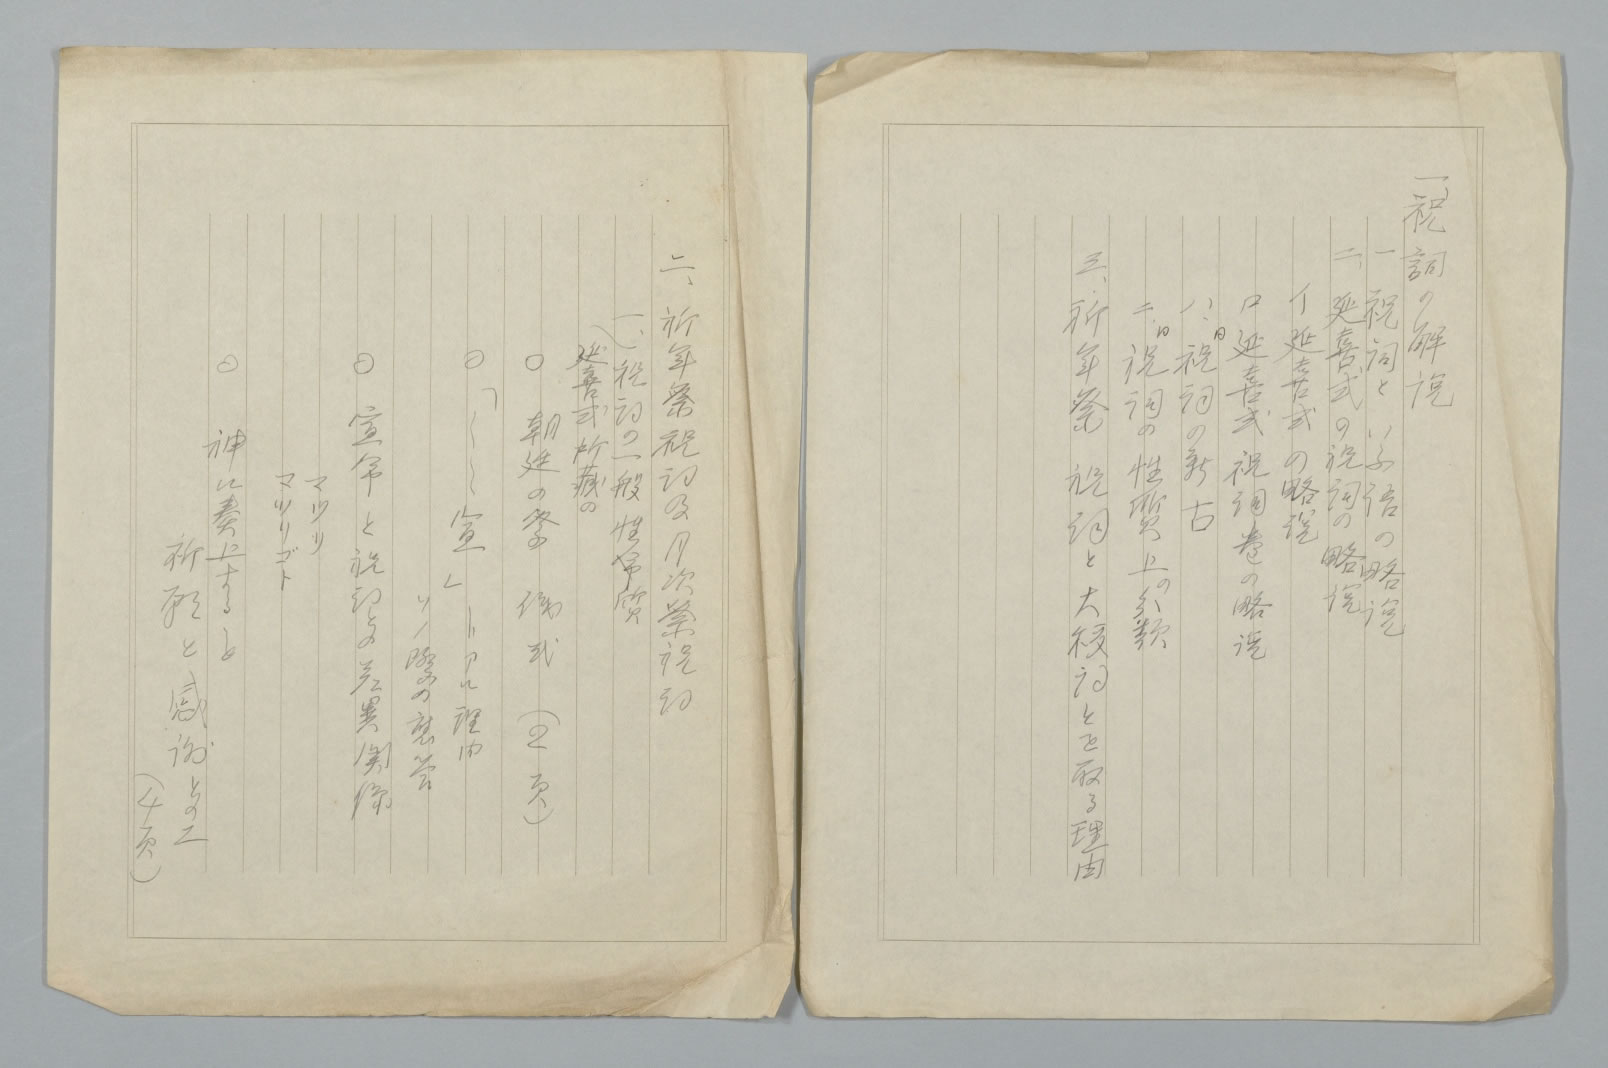 一、祝詞の解説
一 祝詞といふ語の略説
二、延喜式の祝詞の略説
イ 延喜式の略説
ロ 延喜式祝詞巻の略説
ハ、同祝詞の新古
ニ、同祝詞の性質上の分類
三、祈年祭祝詞と大祓詞とを取る理由
二、祈年祭祝詞及月次祭祝詞
(一、祝詞の一般性質
延喜式所蔵の
○ 朝廷の祭儀式
○ 「〱〱宣」トアル理由
ソノ際の
○ 宣命と祝詞との差異関係
マツリ
マツリゴト
○ 神に奏上すると
祈願と感謝との二
(4頁)